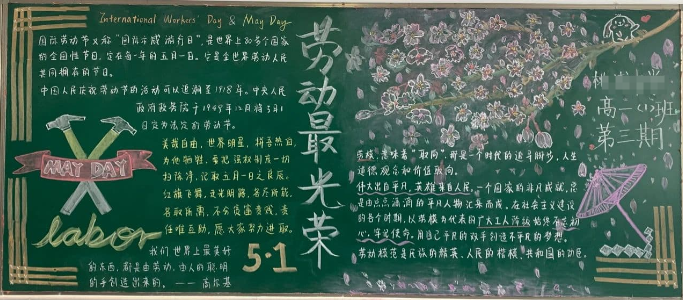 International Workers' Day & May Day
国际劳动节又称“国际示威游行日”,是世界上80多个国家
的全国性节日。定在每一年的五月一日。它是全世界劳动人民
共同拥有的节日。
中国人民庆祝劳动节的活动可以追溯至1918年。中央人民
政府政务院于1949年12月将5月1
日定为法定的劳动节。
MAY DAY
labor
美哉自由,世界明星,拼吾热血,
为他牺牲,要把强权制度一切
扫除净,记取五月一日之良辰。
红旗飞舞,走光明路,各尽所能,
各取所需,不分贫富贵贱,责
任唯互助,愿大家努力进取。
我们世界上最美好
的东西,都是由劳动、由人的聪明
的手创造出来的。——高尔基
5·1
劳动最光荣
高一(1)班
第三期
英模,意味着“取向”,那是一个时代的追寻脚步,人生
道德观念和价值取向。
伟大出自平凡,英雄来自人民。一个国家的非凡成就,总
是由点点滴滴的平凡人物汇集而成。在社会主义建设
的各个时期,以劳模为代表的广大工人阶级始终不忘初
心、牢记使命,用自己平凡的双手创造不平凡的梦想。
劳动模范是民族的精英、人民的楷模、共和国的功臣。